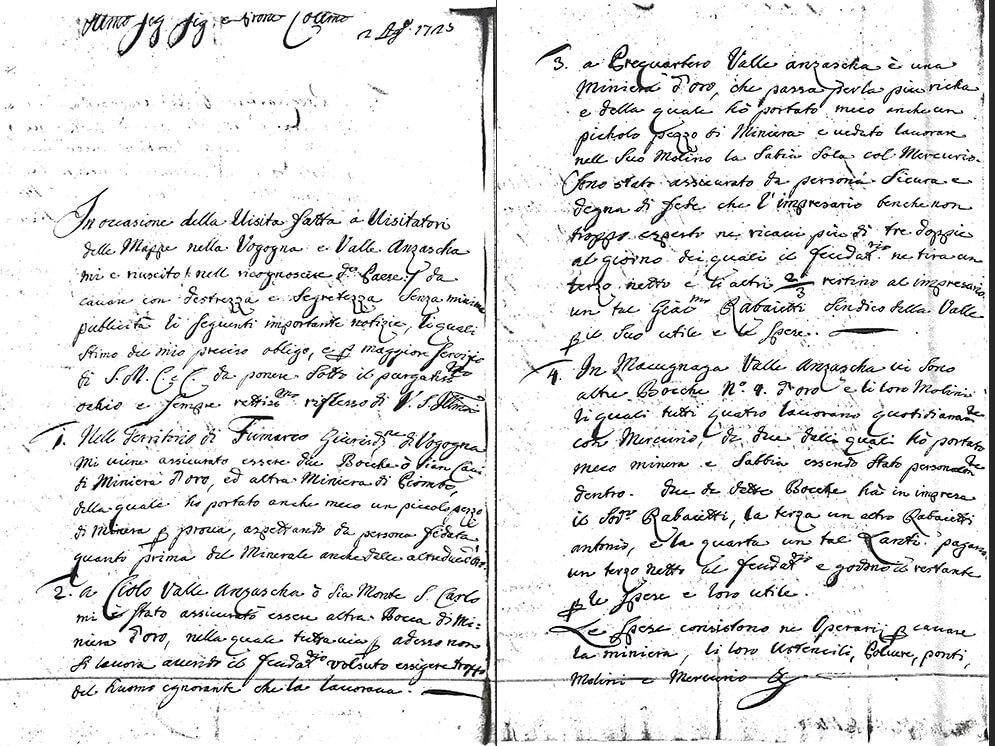 Illmo Sig Sig e Pron Collmo
2 Ag.o 1723
In occasione della Uisita fatta a Uisitatori
delle Mappe nella Vogogna e Valle Anzascha
mi e riuscito nell ricognoscere d.o Paese da
cauare con destrezza e Segretezza Senza minima
publicità li Seguenti importante notizie, li quali
Stimo del mio preciso obligo, e p maggiore Seruizio
di S.M. C e C da ponere Sotto il purgatiss.mo
ochio e Sempre rettiss.mo riflesso di V. S. Illma
1. Nell Territorio di Fumarco Giurisd.ne di Vogogna
mi uiene assicurato essere due Bocche ò sian Caue
di Miniera d'oro, ed altra Miniera di Piombo,
della quale hò portato anche meco un piccolo pezzo
di Minera p proua, aspettando da persona fedata
quanto prima del Minerale anche dalle altre due
2. a Ciolo Valle Anzascha ò Sia Monte S. Carlo
mi è Stato assicurato essere altra Bocca di Mi:
niera d'oro, nella quale tutta uia p adesso non
Si lauora auendo il feudat.rio volsuto essigere troppo
del huomo egnorante che la lauoraua.
3. a Prequartero Valle anzascha è una
Miniera d'oro, che passa per la piu richa
e della quale hò portato meco anche un
picholo pezzo di Miniera e ueduto lauorare
nell Suo Molino la Sabia Sola col Mercurio.
Sono stato assicurato da persona Sicura e
degna di fede che l'impresario benche non
troppo experto ne ricaui piu di tre doppie
al giorno dei quali il feudat.rio ne tira un
terzo netto e li altri 2/3 restino al impresario
un tal Giac.mo Rabaietti Sindico della Valle
p il Suo utile e le Spese.
4. In Macugnaga Valle Anzascha ui Sono
altre Bocche N.o 4. d'oro e li loro Molini
li quali tutti quatro lauorano quotidianam.te
con Mercurio, da due delle quali hò portato
meco minera e Sabbia essendo Stato personalm.te
dentro. due de dette Bocche hà in impresa
il Sod.to Rabaietti, la terza un altro Rabaietti
antonio, e la quarta un tal Lanti. pagano
un terzo netto al feudat.rio e godono il restante
p le Spese e loro utile.
Le Spese consistono ne Operarij p cauare
la miniera, li loro Ustencili, Poluere, ponti,
Molini e Mercurio